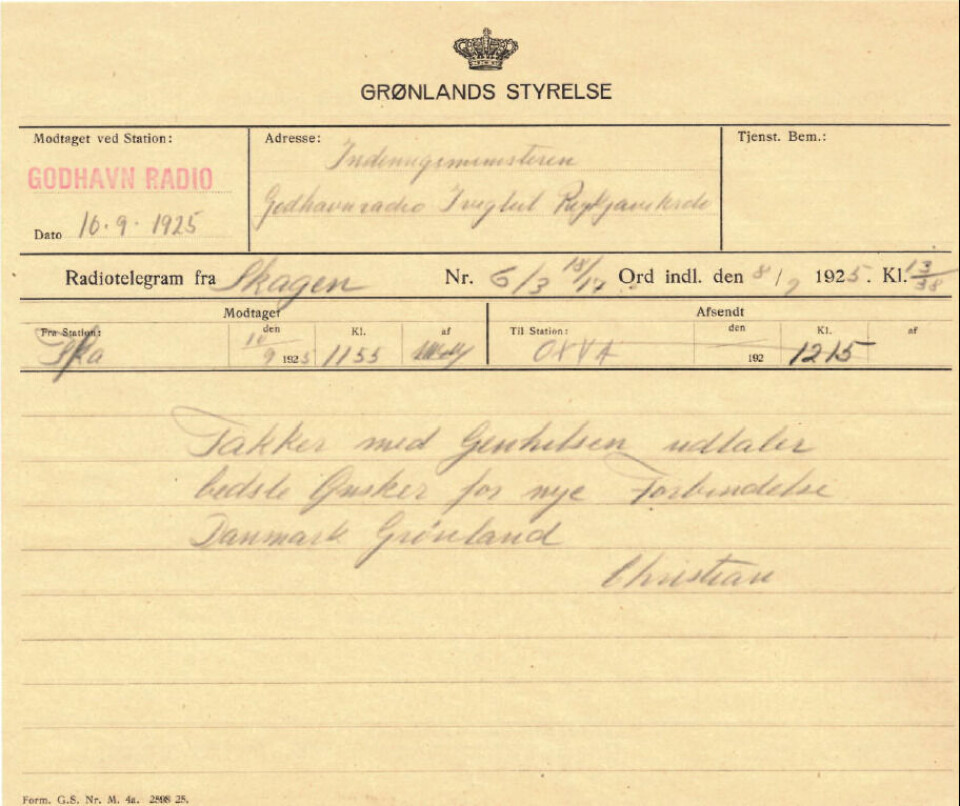 GRØNLANDS STYRELSE
Modtaget ved Station:
GODHAVN RADIO
Dato 10.9.1925
Adresse:
Indenrigsministeren
Godhavnradio Ivigtut
Tjenst. Bem.:
Radiotelegram fra Skagen Nr. 6/3 18/17 Ord indl. den 8/9 1925. Kl. 13/38
Modtaget
Afsendt
Fra Station: den Kl. af Til Station: den Kl. af
Ska 10/9 1925 1155 OXVA 192 1215
Takker med Genhilsen udtaler
bedste Ønsker for nye Forbindelse
Danmark Grønland
Christian
Form. G.S. Nr. M. 4a. 2898 25.